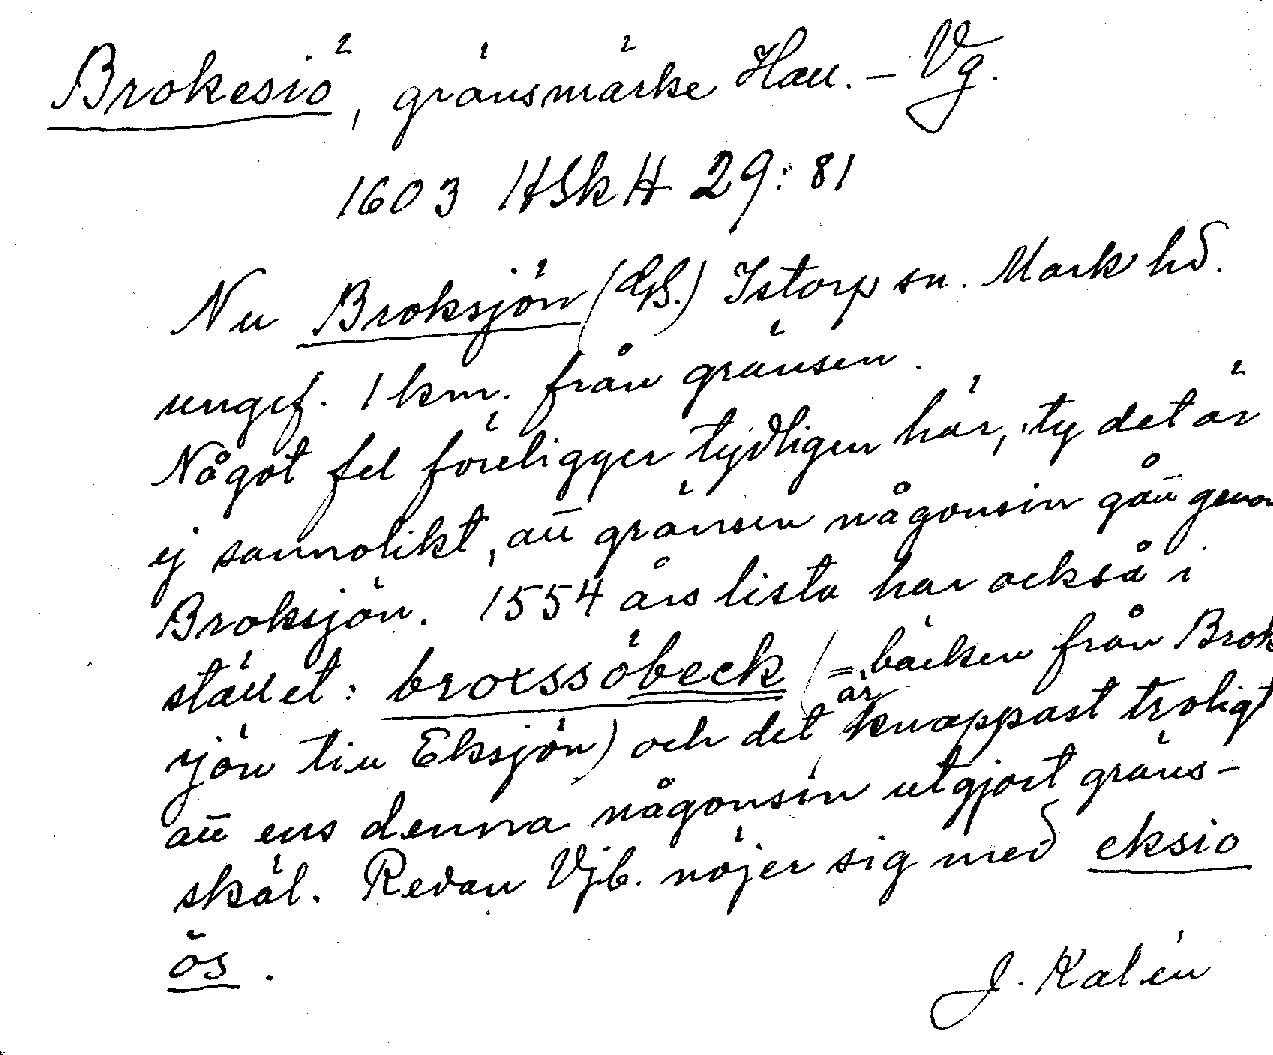 Brokesiö, gränsmärke Hall. – Vg.
1603 HSkH 29: 81
Nu Broksjön (GB.) Istorp sn. Mark hd.
ungef. 1 km. från gränsen.
Något fel föreligger tydligen här, ty det är
ej sannolikt, att gränsen någonsin gått genom
Broksjön. 1554 års lista har också i
stället: broxssöbeck (= bäcken från Brok
sjön till Eksjön) och det är knappast troligt
att ens denna någonsin utgjort gräns-
skäl. Redan Vjb. nöjer sig med eksio
ös.
J. Kalén